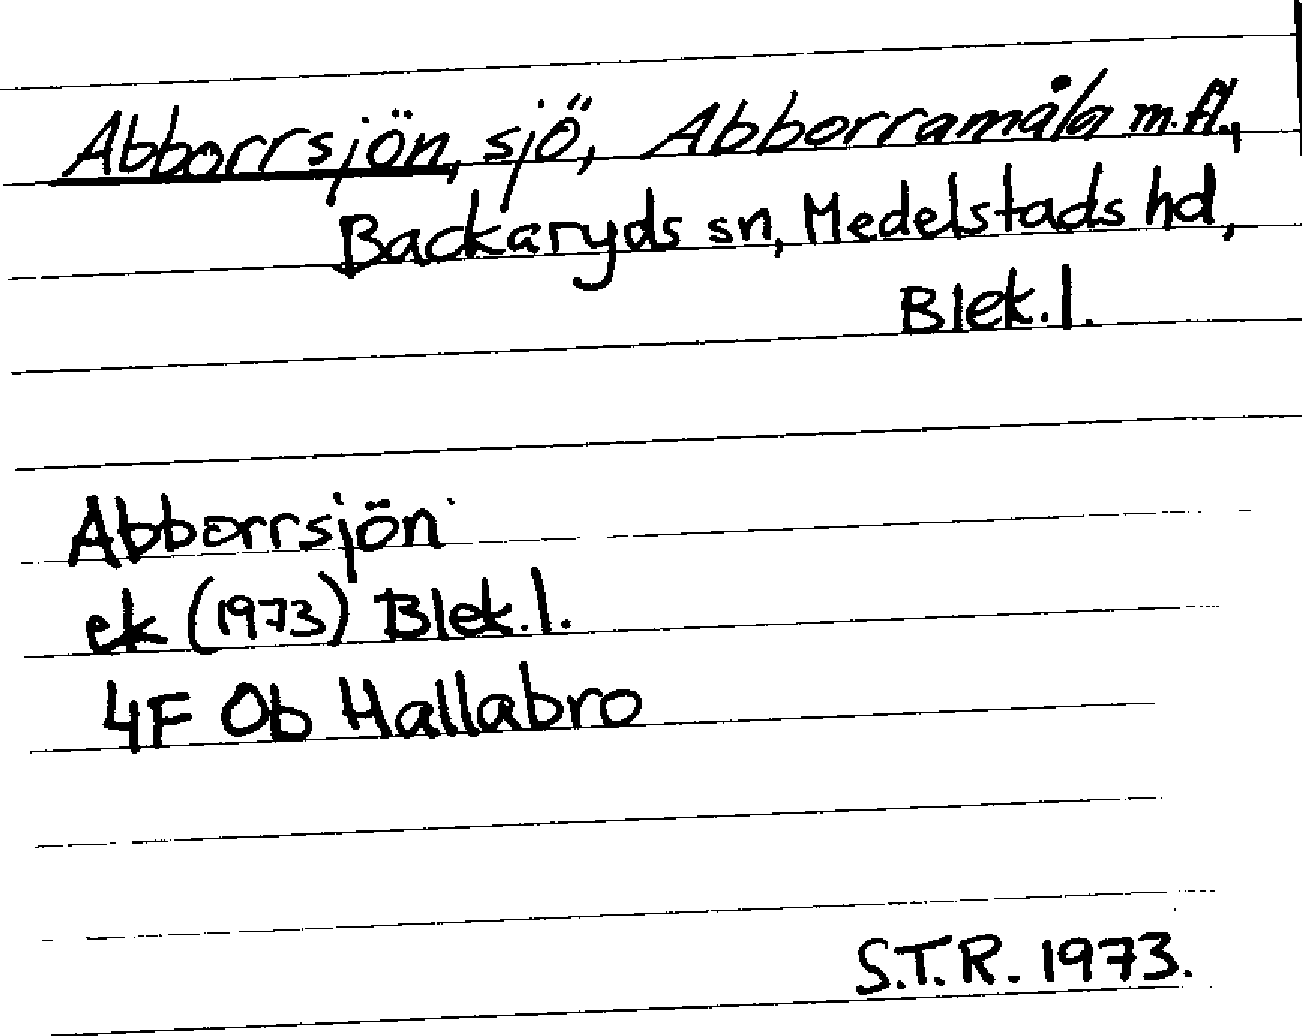 Abborrsjön, sjö, Abborramåla m.fl.,
Backaryds sn, Medelstads hd,
Blek.l.
Abborrsjön
ek (1973) Blek.l.
4F Ob Hallabro
S.T.R. 1973.